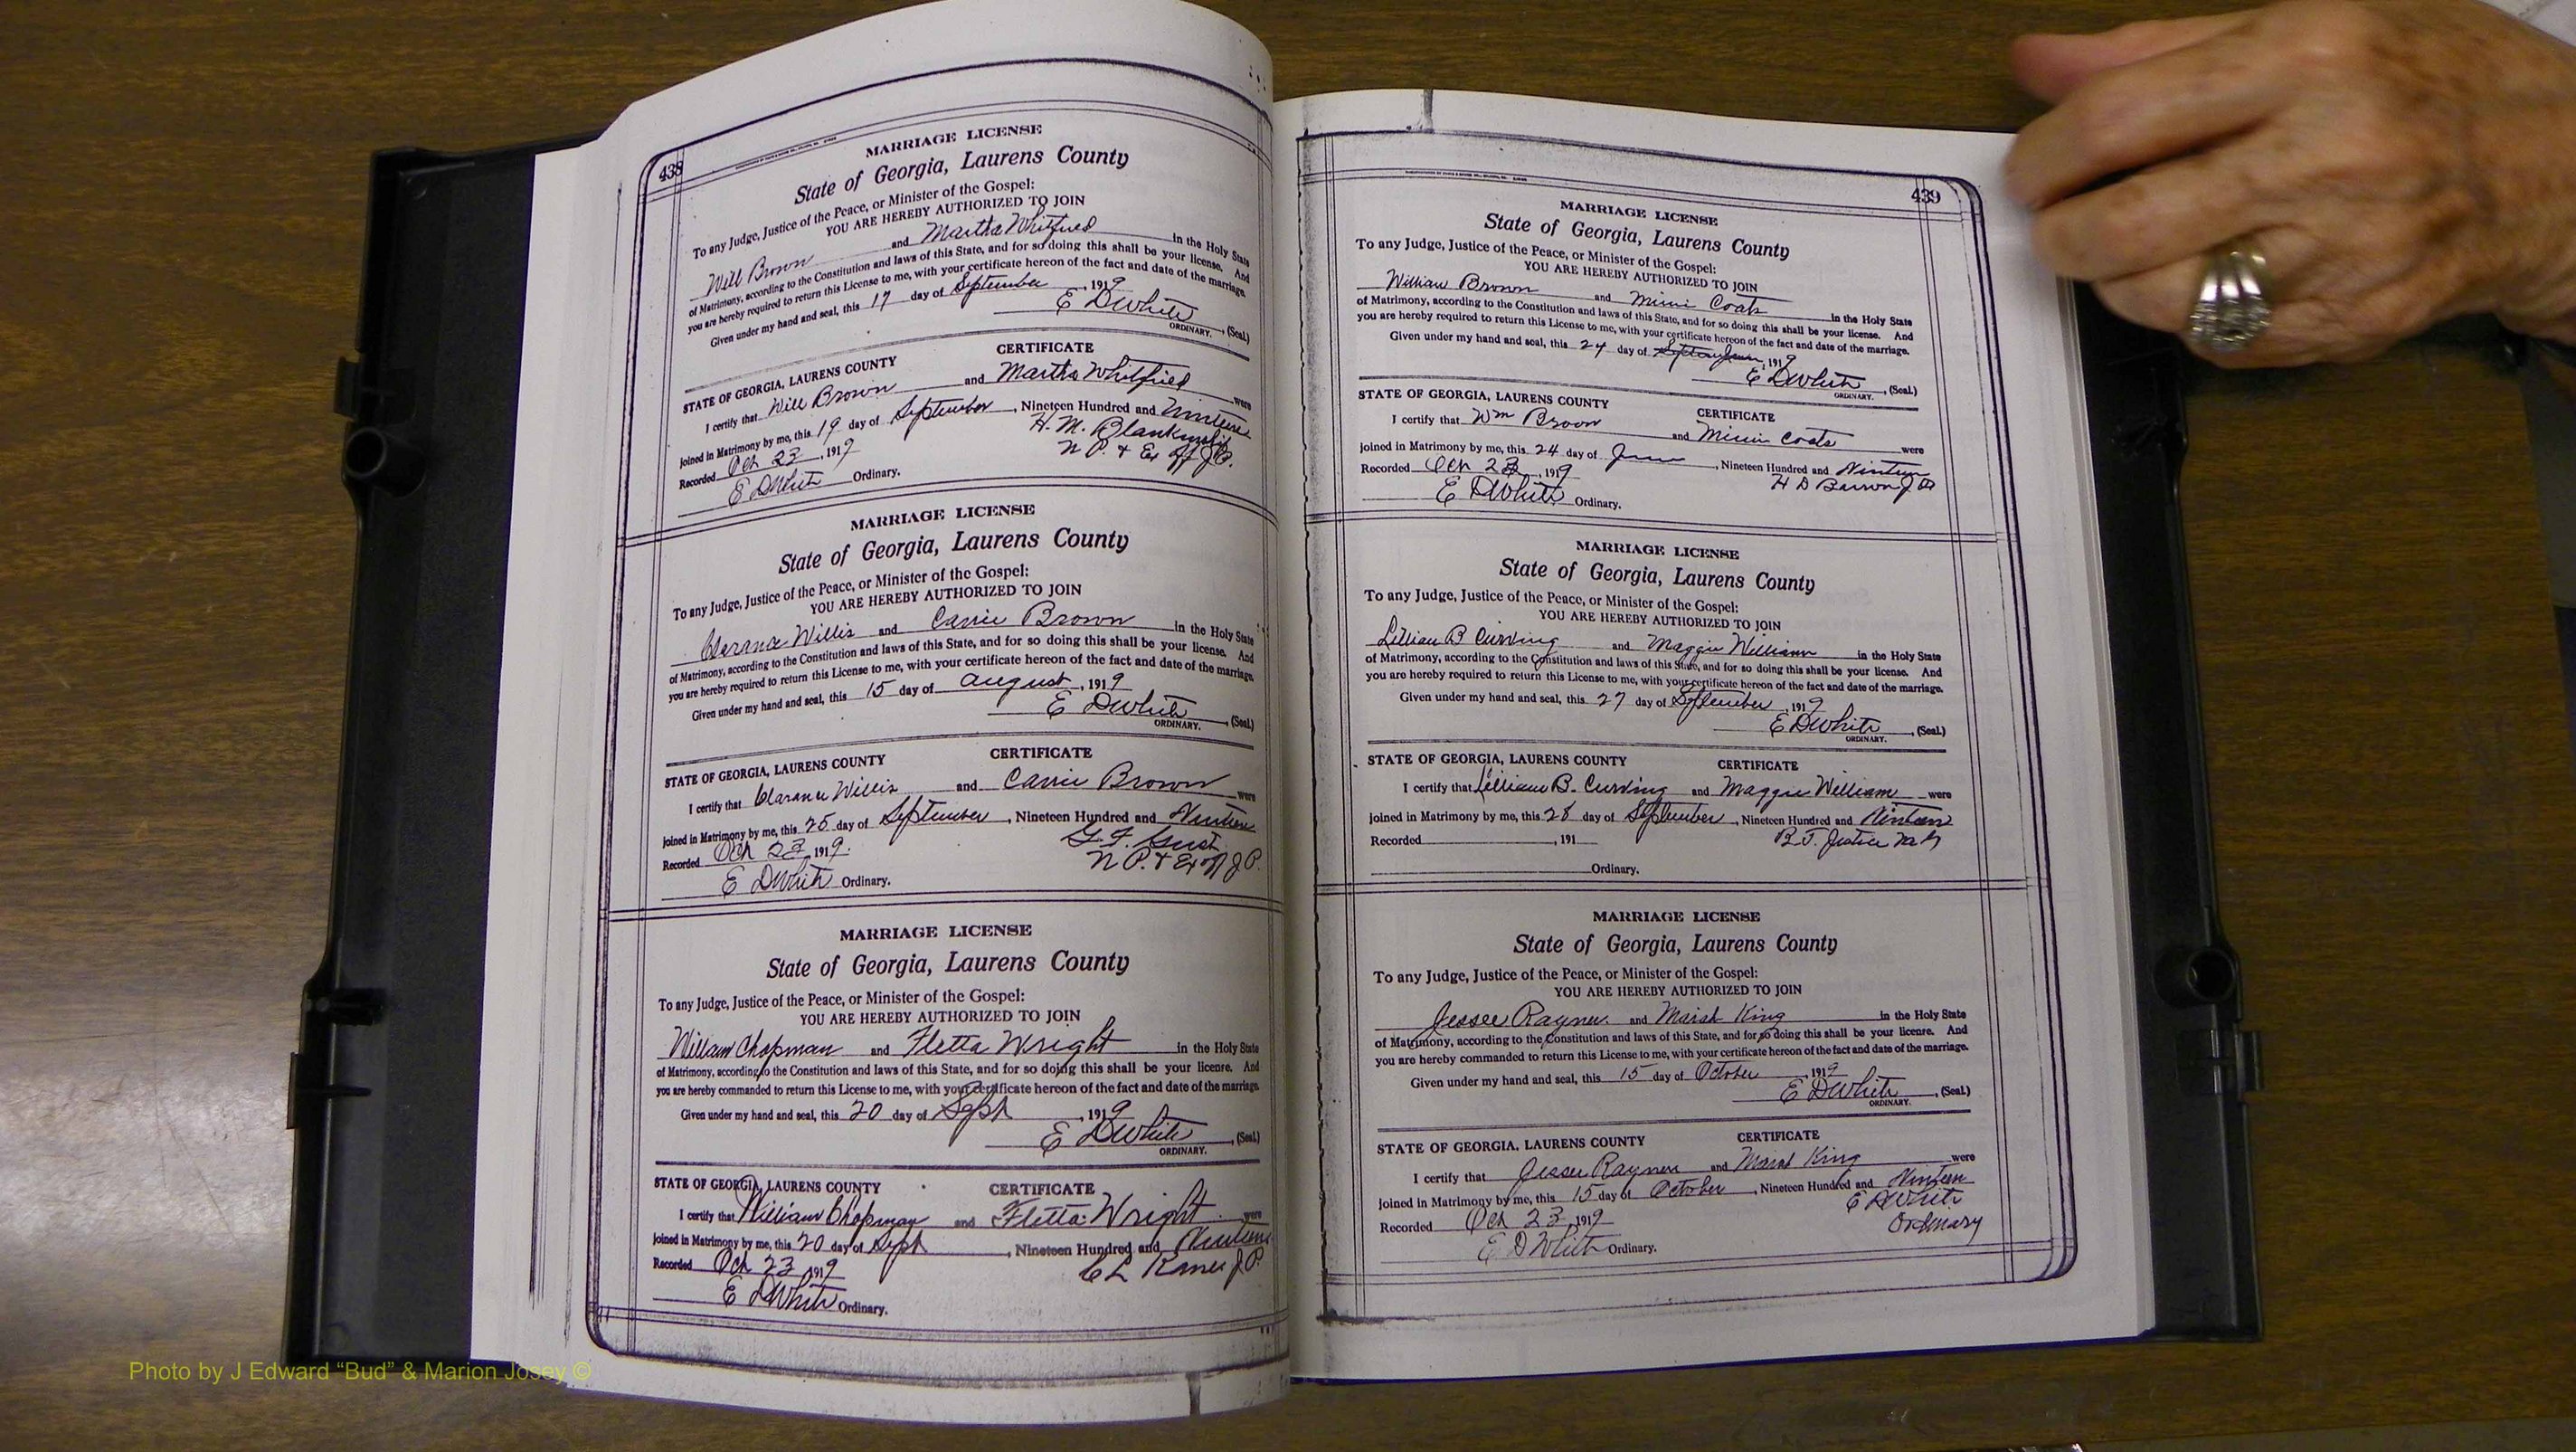 438
MARRIAGE LICENSE
State of Georgia, Laurens County
To any Judge, Justice of the Peace, or Minister of the Gospel:
YOU ARE HEREBY AUTHORIZED TO JOIN
Will Brown and Martha Whitfield in the Holy State
of Matrimony, according to the Constitution and laws of this State, and for so doing this shall be your license. And
you are hereby required to return this License to me, with your certificate hereon of the fact and date of the marriage.
Given under my hand and seal, this 17 day of September, 1919
E D White, (Seal)
ORDINARY.
STATE OF GEORGIA, LAURENS COUNTY CERTIFICATE
I certify that Will Brown and Martha Whitfield were
joined in Matrimony by me, this 19 day of September, Nineteen Hundred and Nineteen
H. M.
Recorded Oct 23, 1919 N P. & Ex Off J P.
E D White Ordinary.
MARRIAGE LICENSE
State of Georgia, Laurens County
To any Judge, Justice of the Peace, or Minister of the Gospel:
YOU ARE HEREBY AUTHORIZED TO JOIN
Clarance Willis and Carrie Brown in the Holy State
of Matrimony, according to the Constitution and laws of this State, and for so doing this shall be your license. And
you are hereby required to return this License to me, with your certificate hereon of the fact and date of the marriage.
Given under my hand and seal, this 15 day of August, 1919
E D White, (Seal)
ORDINARY.
STATE OF GEORGIA, LAURENS COUNTY CERTIFICATE
I certify that Clarance Willis and Carrie Brown were
joined in Matrimony by me, this 25 day of September, Nineteen Hundred and Nineteen
Recorded Oct 23, 1919.
N P. & Ex off J P.
E D White Ordinary.
MARRIAGE LICENSE
State of Georgia, Laurens County
To any Judge, Justice of the Peace, or Minister of the Gospel:
YOU ARE HEREBY AUTHORIZED TO JOIN
William Chapman and Fletta Wright in the Holy State
of Matrimony, according to the Constitution and laws of this State, and for so doing this shall be your license. And
you are hereby commanded to return this License to me, with your certificate hereon of the fact and date of the marriage.
Given under my hand and seal, this 20 day of Sept, 1919
E D White, (Seal)
ORDINARY.
STATE OF GEORGIA, LAURENS COUNTY CERTIFICATE
I certify that William Chapman and Fletta Wright were
joined in Matrimony by me, this 20 day of Sept, Nineteen Hundred and Nineteen
Recorded Oct 23, 1919 J P.
E D White Ordinary.
439
MARRIAGE LICENSE
State of Georgia, Laurens County
To any Judge, Justice of the Peace, or Minister of the Gospel:
YOU ARE HEREBY AUTHORIZED TO JOIN
William Brown and Mimi Coats in the Holy State
of Matrimony, according to the Constitution and laws of this State, and for so doing this shall be your license. And
you are hereby required to return this License to me, with your certificate hereon of the fact and date of the marriage.
Given under my hand and seal, this 24 day of, 1919
E D White, (Seal)
ORDINARY.
STATE OF GEORGIA, LAURENS COUNTY CERTIFICATE
I certify that Wm Brown and Mimi Coats were
joined in Matrimony by me, this 24 day of June, Nineteen Hundred and Nineteen
Recorded Oct 23, 1919 H D Barron J P
E D White Ordinary.
MARRIAGE LICENSE
State of Georgia, Laurens County
To any Judge, Justice of the Peace, or Minister of the Gospel:
YOU ARE HEREBY AUTHORIZED TO JOIN
Lillian B and Maggie William in the Holy State
of Matrimony, according to the Constitution and laws of this State, and for so doing this shall be your license. And
you are hereby required to return this License to me, with your certificate hereon of the fact and date of the marriage.
Given under my hand and seal, this 27 day of September, 1919
E D White, (Seal.)
ORDINARY.
STATE OF GEORGIA, LAURENS COUNTY CERTIFICATE
I certify that Lillian B. and Maggie William were
joined in Matrimony by me, this 28 day of September, Nineteen Hundred and Nineteen
Recorded, 191 B. J. Justice
Ordinary.
MARRIAGE LICENSE
State of Georgia, Laurens County
To any Judge, Justice of the Peace, or Minister of the Gospel:
YOU ARE HEREBY AUTHORIZED TO JOIN
Jessee Rayner and Marah King in the Holy State
of Matrimony, according to the Constitution and laws of this State, and for so doing this shall be your license. And
you are hereby commanded to return this License to me, with your certificate hereon of the fact and date of the marriage.
Given under my hand and seal, this 15 day of October, 1919
E D White, (Seal)
ORDINARY.
STATE OF GEORGIA, LAURENS COUNTY CERTIFICATE
I certify that Jessee Rayner and Marah King were
joined in Matrimony by me, this 15 day of October, Nineteen Hundred and Nineteen
E D White
Recorded Oct 23, 1919 Ordinary
E D White Ordinary.
Photo by J Edward “Bud” & Marion Josey ©